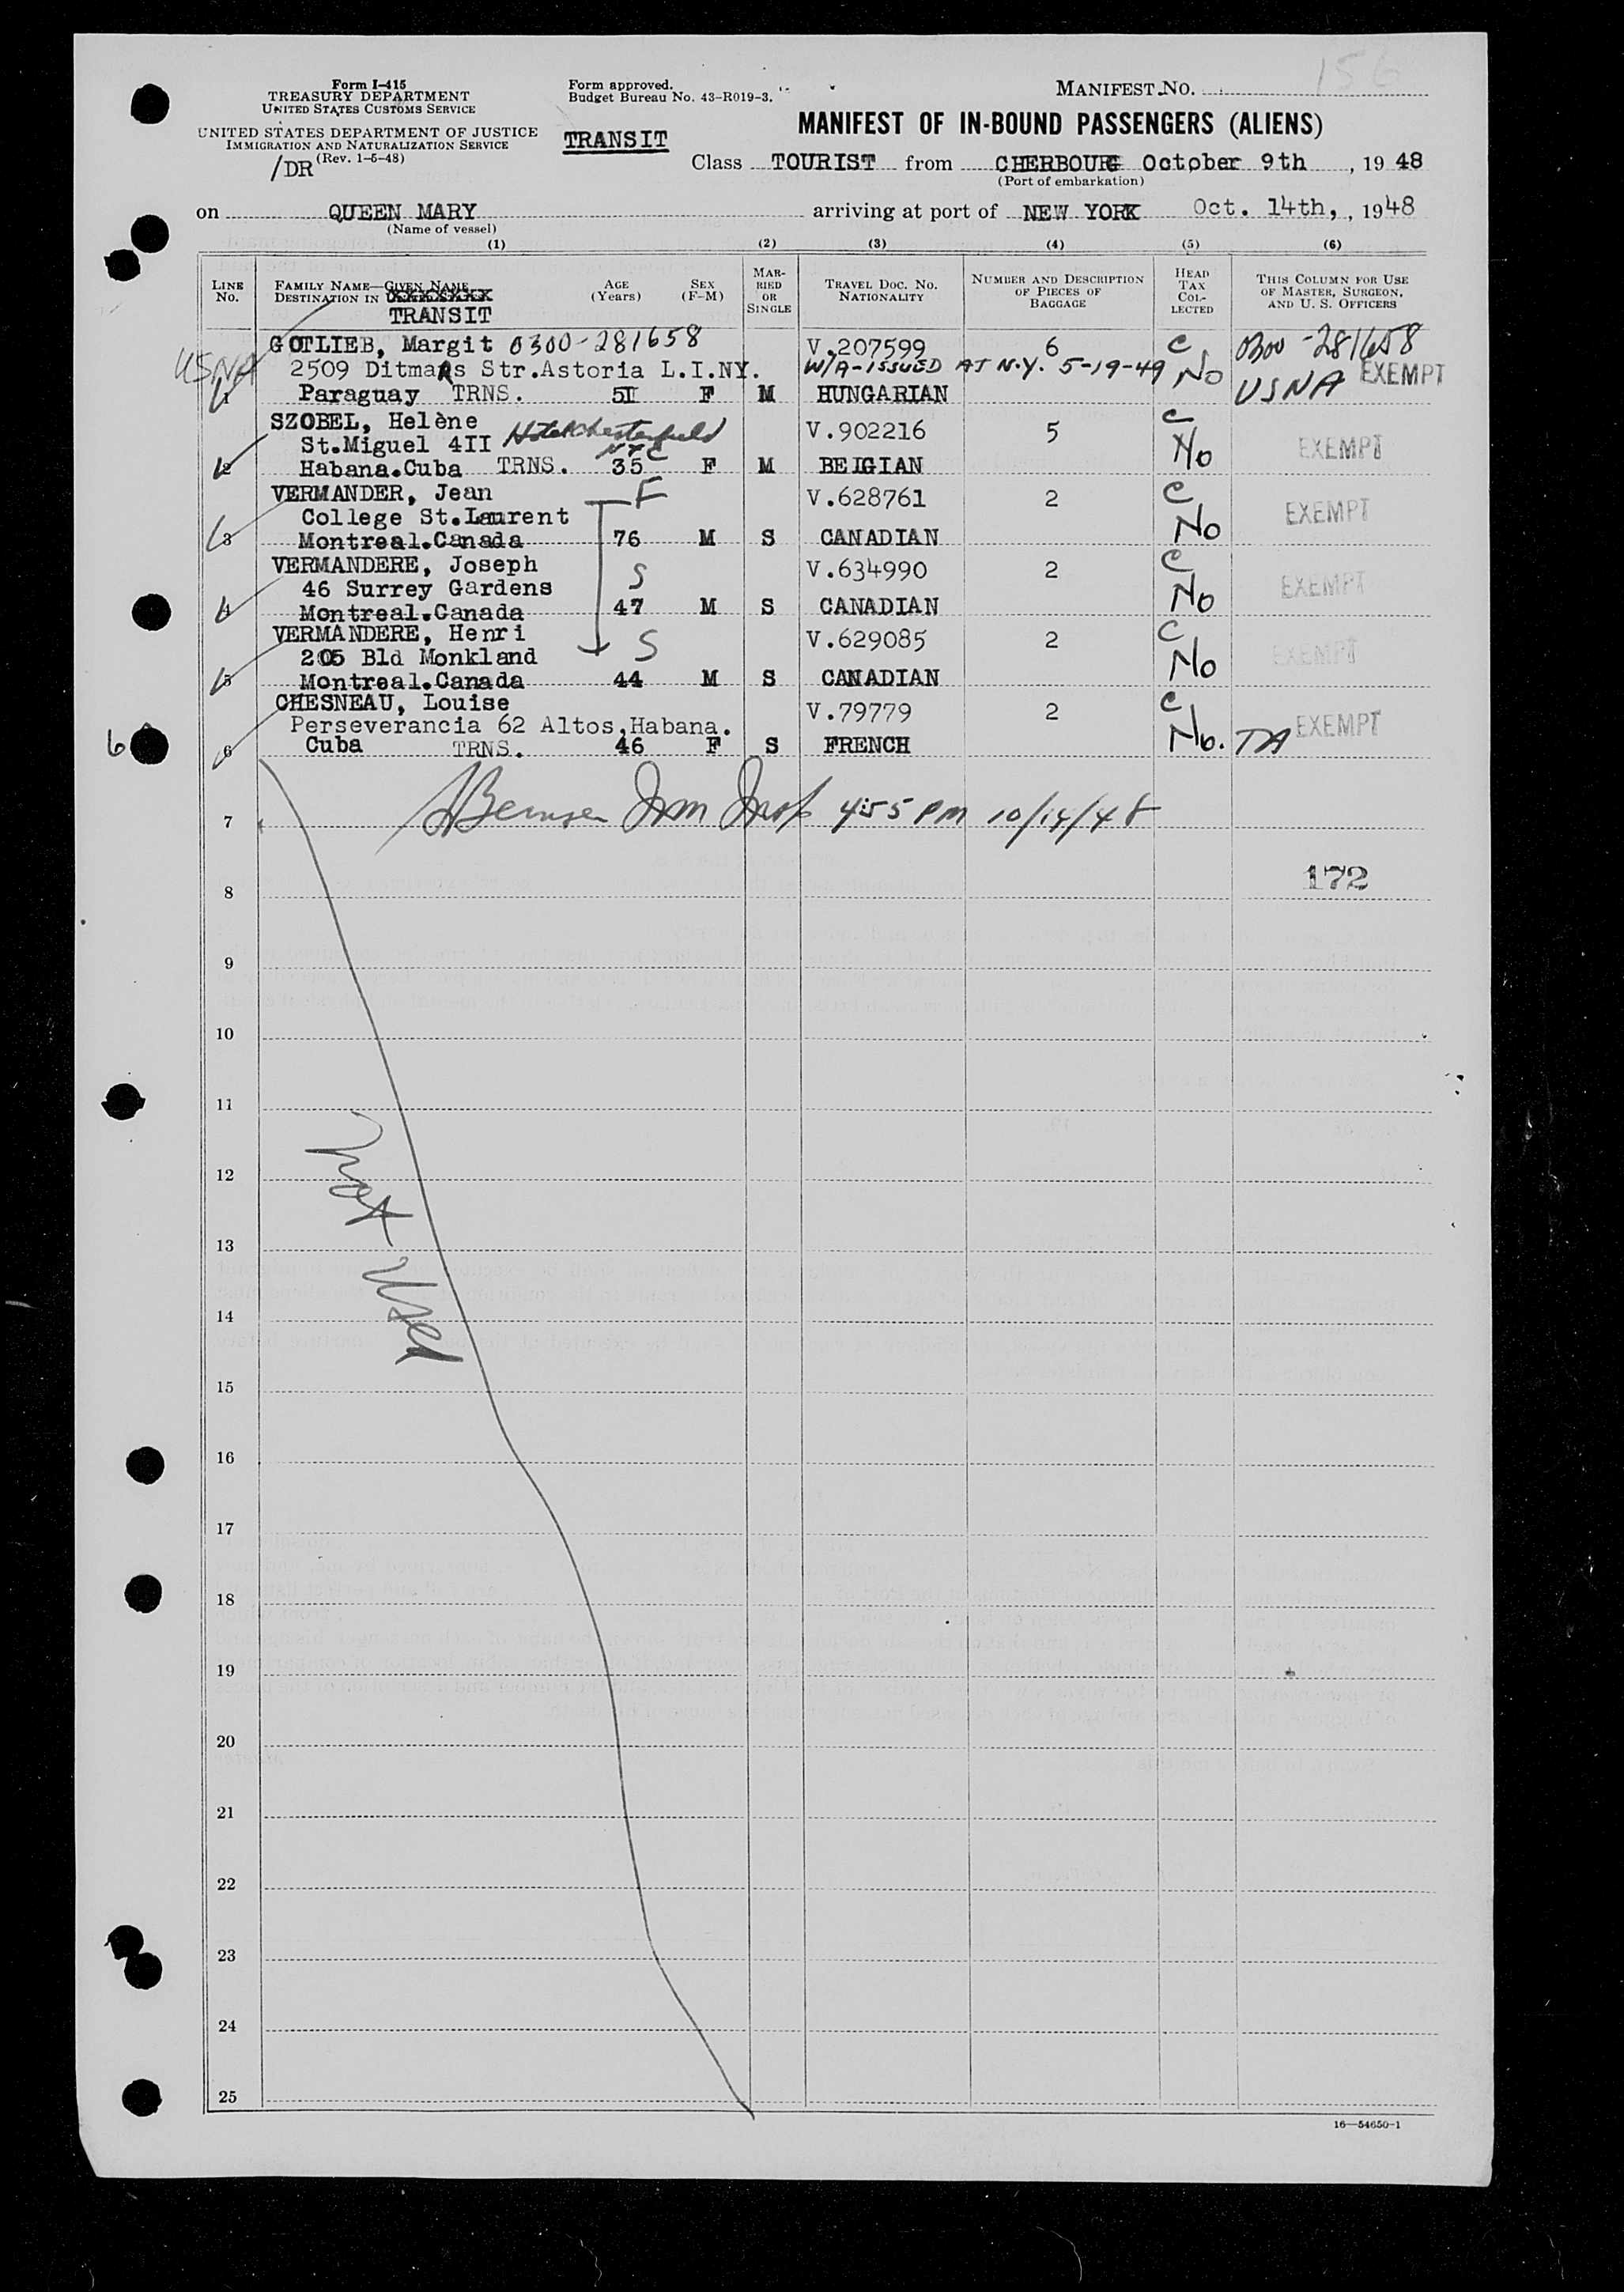 156
Form I-415
TREASURY DEPARTMENT
UNITED STATES CUSTOMS SERVICE
UNITED STATES DEPARTMENT OF JUSTICE
IMMIGRATION AND NATURALIZATION SERVICE
(Rev. 1-5-48)
/DR
Form approved.
Budget Bureau No. 43-R019-3.
TRANSIT
MANIFEST NO.
MANIFEST OF IN-BOUND PASSENGERS (ALIENS)
Class TOURIST from CHERBOURG October 9th, 1948
(Port of embarkation)
on QUEEN MARY arriving at port of NEW YORK Oct. 14th, , 1948
(Name of vessel)
(1) (2) (3) (4) (5) (6)
LINE No.
FAMILY NAME—GIVEN NAME
DESTINATION IN
TRANSIT
AGE (Years)
SEX (F-M)
MARRIED OR SINGLE
TRAVEL DOC. NO. NATIONALITY
NUMBER AND DESCRIPTION OF PIECES OF BAGGAGE
HEAD TAX COLLECTED
THIS COLUMN FOR USE OF MASTER, SURGEON, AND U. S. OFFICERS
USNA
GOTLIEB, Margit 0300-281658 V.207599 6 C 0300-281658
2509 Ditmars Str.Astoria L.I.NY. W/A-ISSUED AT N.Y. 5-19-49 No USNA EXEMPT
1 Paraguay TRNS. 51 F M HUNGARIAN
SZOBEL, Helène V.902216 5 C
St.Miguel 411 Hotel Chesterfield NYC No EXEMPT
2 Habana.Cuba TRNS. 35 F M BELGIAN
VERMANDER, Jean F V.628761 2 C
College St.Laurent No EXEMPT
3 Montreal.Canada 76 M S CANADIAN
VERMANDERE, Joseph S V.634990 2 C
46 Surrey Gardens No EXEMPT
4 Montreal.Canada 47 M S CANADIAN
VERMANDERE, Henri S V.629085 2 C
205 Bld Monkland No EXEMPT
5 Montreal.Canada 44 M S CANADIAN
CHESNEAU, Louise V.79779 2 C
Perseverancia 62 Altos,Habana. EXEMPT
6 6 Cuba TRNS. 46 F S FRENCH No. TA
7 Imm Insp 4:55 PM 10/14/48
172
8
9
10
11
12
13
14
15
16
17
18
19
20
21
22
23
24
25
Not Used
16—54650-1